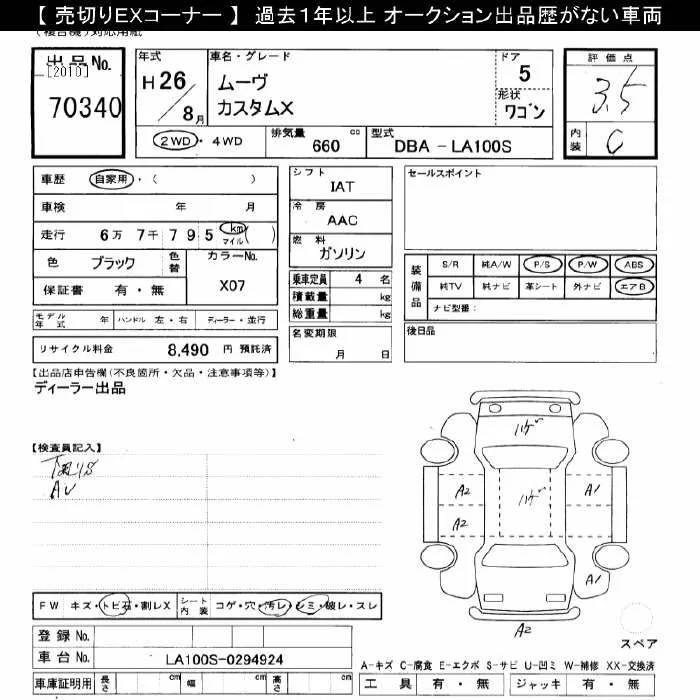 【 売切りEXコーナー 】 過去1年以上 オークション出品歴がない車両
(複合機)対応用紙
出品No.
[2010]
70340
年式
H 26 / 8月
車名・グレード
ムーヴ
カスタムX
ドア
5
形状
ワゴン
評価点
3.5
内装
C
2WD・4WD
排気量
660 cc
型式
DBA - LA100S
車歴 自家用・( )
車検 年 月
走行 6万 7千 7 9 5 km マイル ( )
色 ブラック 色替
カラーNo.
X07
保証書 有・無
モデル年式 年 ハンドル 左・右 ディーラー・並行
リサイクル料金 8,490 円 預託済
シフト
IAT
冷房
AAC
燃料
ガソリン
乗車定員 4 名
積載量 kg
総重量 kg
名変期限
月 日
セールスポイント
装備品
S/R 純A/W P/S P/W ABS
純TV 純ナビ 革シート 外ナビ エアB
ナビ型番:
後日品
【出品店申告欄(不良箇所・欠品・注意事項等)】
ディーラー出品
【検査員記入】
AU
ハゲ
ハゲ
A2
A2
A1
A1
A2
スペア
FW キズ・トビ石・割レX シート内装 コゲ・穴・汚レ・シミ・破レ・スレ
登録No.
車台No. LA100S-0294924
車庫証明用 長さ cm 幅 cm 高さ cm
A-キズ C-腐食 E-エクボ S-サビ U-凹ミ W-補修 XX-交換済
工具 有・無 ジャッキ 有・無